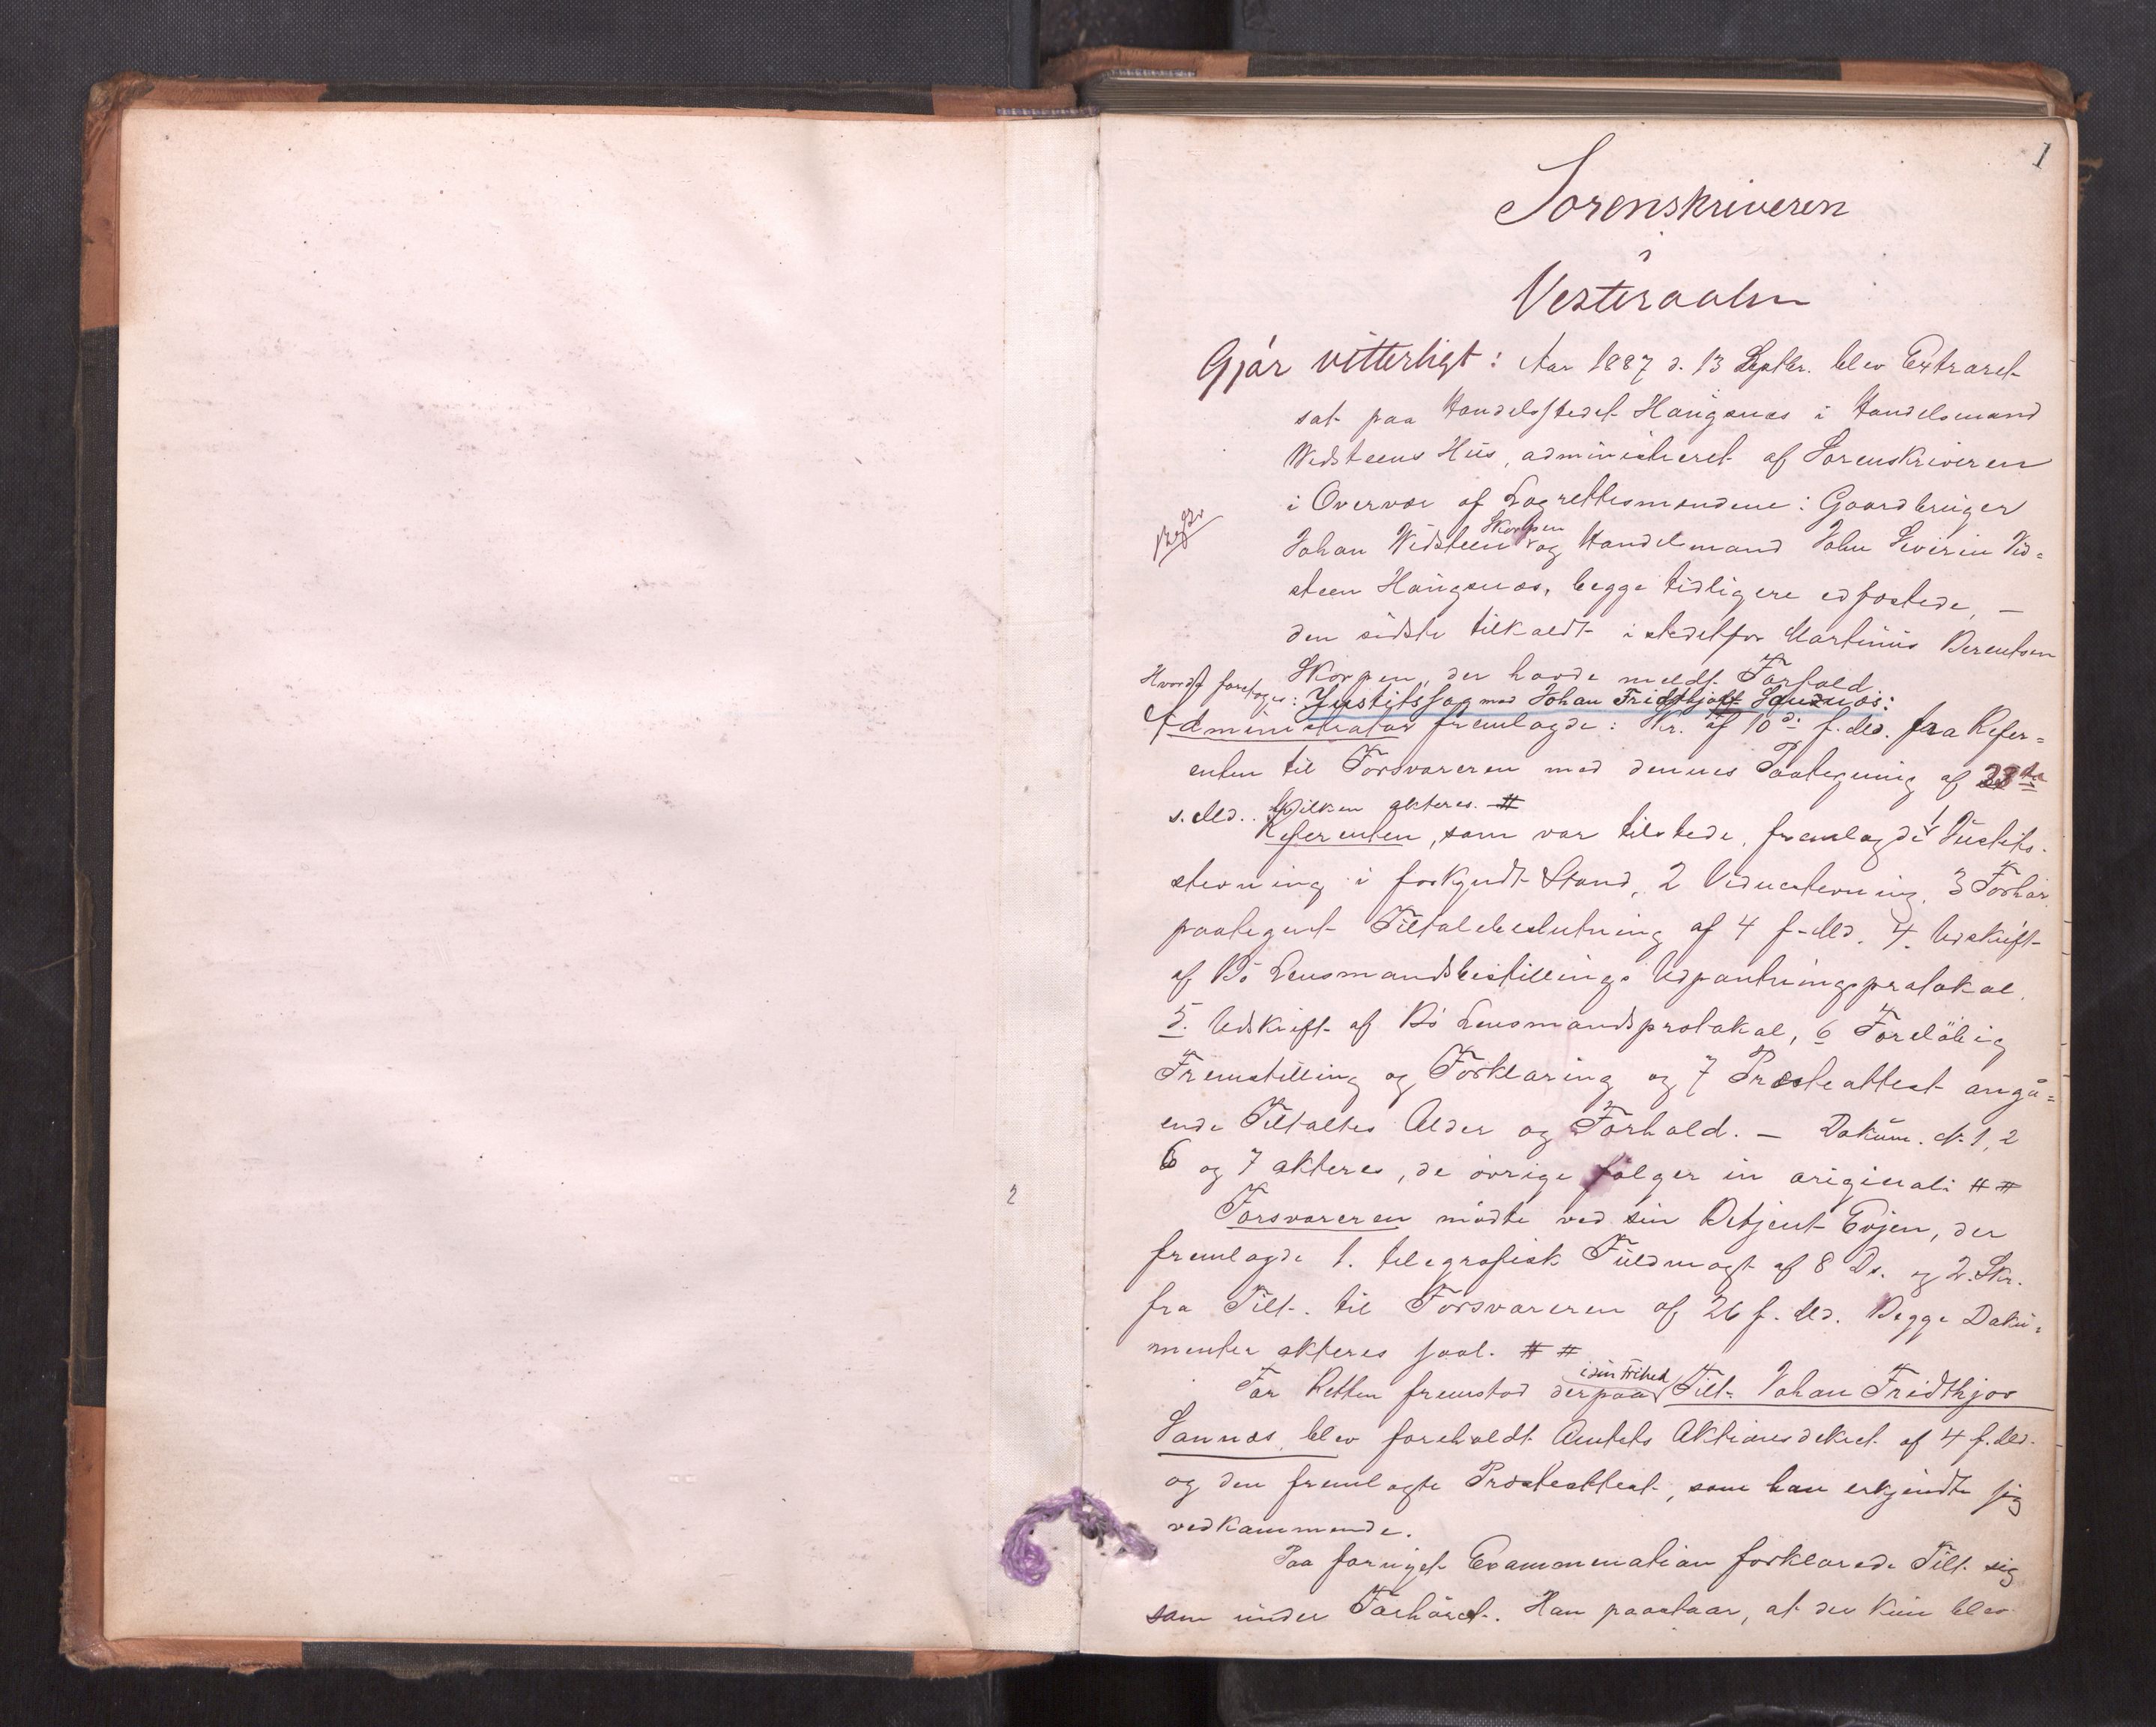 1
Sorenskriveren
i
Vesteraalen
Gjør vitterligt: Aar 1887 d. 13 Septbr. blev Extraret
sat paa Handelsstedet Haugsnæs i Handelsmand
Vidsteens Hus, administreret af Sorenskriveren
i Overvær af Lagrettesmændene: Gaardbruger
Johan Vidsteen Skorpen og Handelsmand John Severin Vid=
steen Haugsnæs, begge tidligere edfæstede, —
den sidste tilkaldt istedetfor Martinus Berentsen
Skorpen, der havde meldt Forfald.
Hvorda foretoges: Justitssag mod Johan Fridthjof Sannæs:
Administrator fremlagde: Skr. af 10d. f. Md. fra Refer=
enten til Forsvareren med dennes Paategning af 23de
s. Md.. Hvilken akteres. #
Referenten, som var tilstede, fremlagde 1 Justits-
stevning i forkyndt Stand, 2 Vidnestevning, 3 Forhør
paategnet Tiltalebeslutning af 4 f. Md. 4. Udskrift
af Bø Lensmandsbestillings Udpantningsprotokol,
5. Udskrift af Bø Lensmandsprotokol, 6 Foreløbig
Fremstilling og Forklaring og 7 Præsteattest angå=
ende Tiltaltes Alder og Forhold. — Dokum. No 1, 2
6 og 7 akteres, de øvrige følger in originali # #
Forsvareren mødte ved sin Betjent Evjen, der
fremlagde 1. telegrafisk Fuldmagt af 8 Ds. og 2. Skr.
fra Tilt. til Forsvareren af 26 f. Md. Begge Doku=
menter akteres saal. # #
For Retten fremstod derpaa i sin Frihed Tilt. Johan Fridthjov
Sannæs, blev foreholdt Amtets Aktionsdekret af 4 f. Md.
og den fremlagte Præsteattest, som han erkjendte sig
vedkommende.
Paa fornyet Examination forklarede Tilt. sig
som under Forhøret. Han paastaar, at der kun blev
2